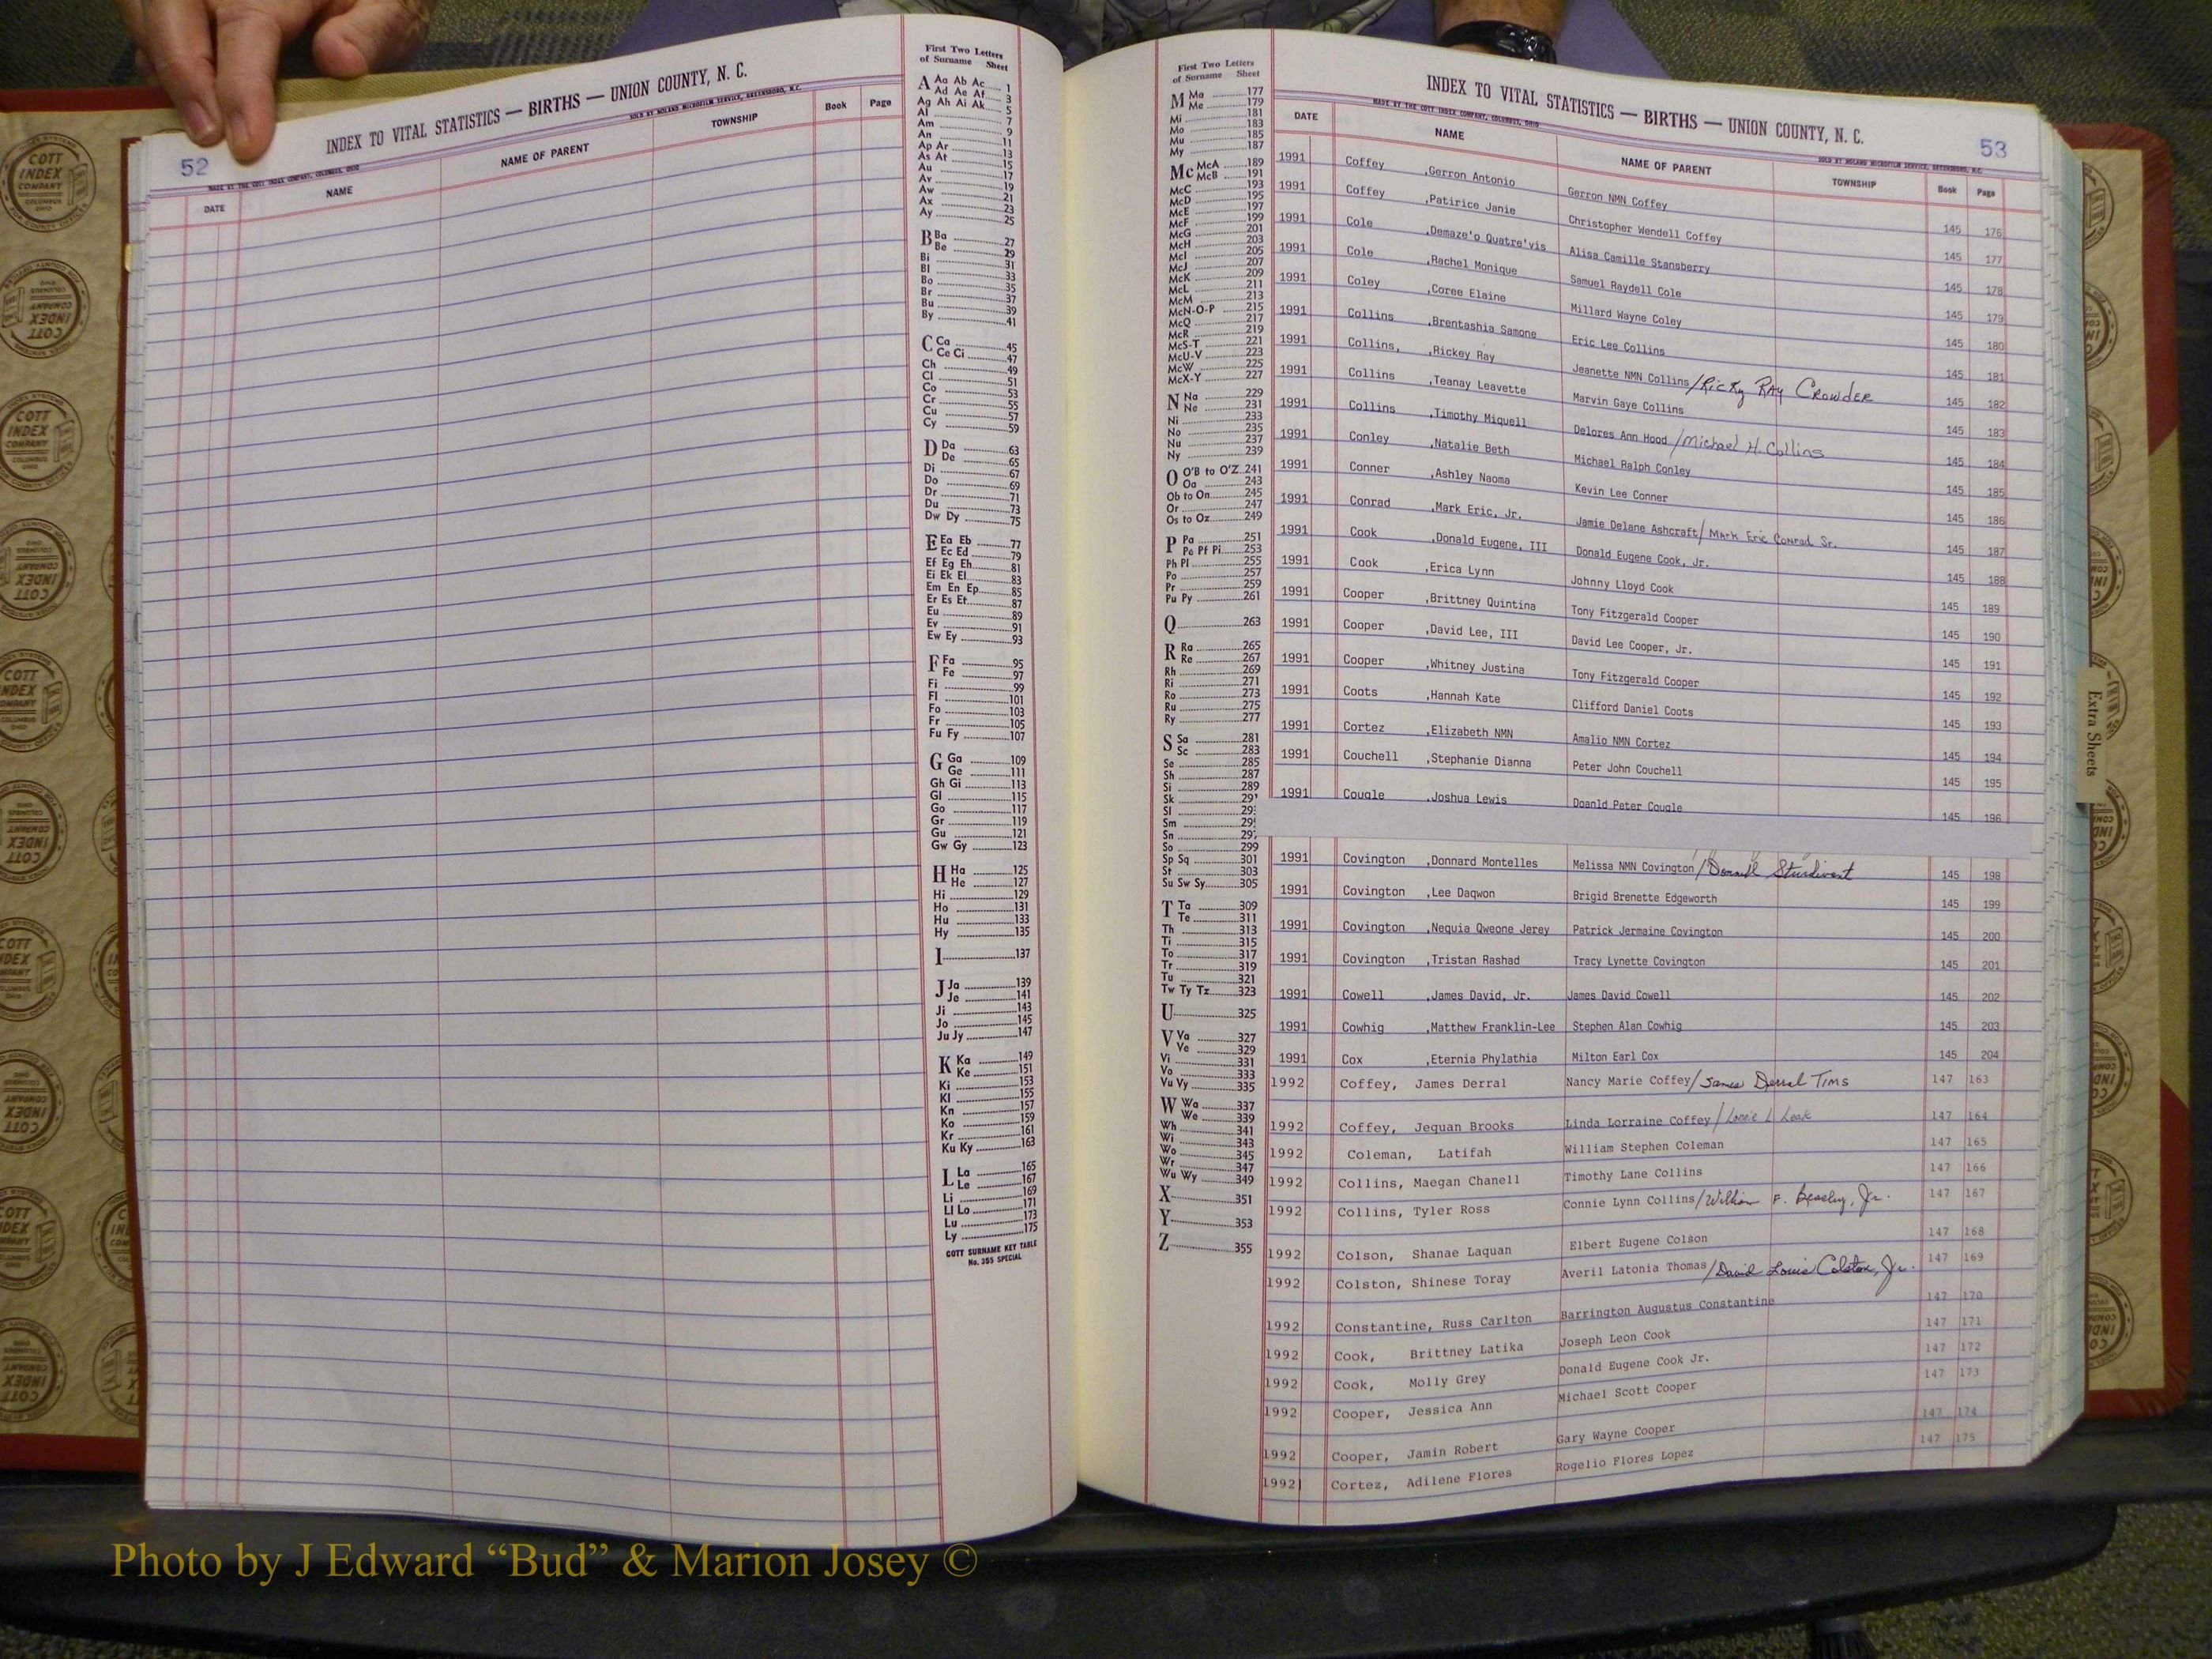 52
INDEX TO VITAL STATISTICS — BIRTHS — UNION COUNTY, N. C.
MADE BY THE COTT INDEX COMPANY, COLUMBUS, OHIO SOLD BY NOLAND MICROFILM SERVICE, GREENSBORO, N.C.
DATE NAME NAME OF PARENT TOWNSHIP Book Page
First Two Letters
of Surname Sheet
A Aa Ab Ac 1
Ad Ae Af 3
Ag Ah Ai Ak 5
Al 7
Am 9
An 11
Ap Ar 13
As At 15
Au 17
Av 19
Aw 21
Ax 23
Ay 25
B Ba 27
Be 29
Bi 31
Bl 33
Bo 35
Br 37
Bu 39
By 41
C Ca 45
Ce Ci 47
Ch 49
Cl 51
Co 53
Cr 55
Cu 57
Cy 59
D Da 63
De 65
Di 67
Do 69
Dr 71
Du 73
Dw Dy 75
E Ea Eb 77
Ec Ed 79
Ef Eg Eh 81
Ei Ek El 83
Em En Ep 85
Er Es Et 87
Eu 89
Ev 91
Ew Ey 93
F Fa 95
Fe 97
Fi 99
Fl 101
Fo 103
Fr 105
Fu Fy 107
G Ga 109
Ge 111
Gh Gi 113
Gl 115
Go 117
Gr 119
Gu 121
Gw Gy 123
H Ha 125
He 127
Hi 129
Ho 131
Hu 133
Hy 135
I 137
J Ja 139
Je 141
Ji 143
Jo 145
Ju Jy 147
K Ka 149
Ke 151
Ki 153
Kl 155
Kn 157
Ko 159
Kr 161
Ku Ky 163
L La 165
Le 167
Li 169
Ll Lo 171
Lu 173
Ly 175
COTT SURNAME KEY TABLE
No. 355 SPECIAL
First Two Letters
of Surname Sheet
M Ma 177
Me 179
Mi 181
Mo 183
Mu 185
My 187
Mc McA 189
McB 191
McC 193
McD 195
McE 197
McF 199
McG 201
McH 203
McI 205
McJ 207
McK 209
McL 211
McM 213
McN-O-P 215
McQ 217
McR 219
McS-T 221
McU-V 223
McW 225
McX-Y 227
N Na 229
Ne 231
Ni 233
No 235
Nu 237
Ny 239
O O'B to O'Z 241
Oa 243
Ob to On 245
Or 247
Os to Oz 249
P Pa 251
Pe Pf Pi 253
Ph Pl 255
Po 257
Pr 259
Pu Py 261
Q 263
R Ra 265
Re 267
Rh 269
Ri 271
Ro 273
Ru 275
Ry 277
S Sa 281
Sc 283
Se 285
Sh 287
Si 289
Sk 29
Sl 29
Sm 29
Sn 29
So 299
Sp Sq 301
St 303
Su Sw Sy 305
T Ta 309
Te 311
Th 313
Ti 315
To 317
Tr 319
Tu 321
Tw Ty Tz 323
U 325
V Va 327
Ve 329
Vi 331
Vo 333
Vu Vy 335
W Wa 337
We 339
Wh 341
Wi 343
Wo 345
Wr 347
Wu Wy 349
X 351
Y 353
Z 355
INDEX TO VITAL STATISTICS — BIRTHS — UNION COUNTY, N. C.
53
MADE BY THE COTT INDEX COMPANY, COLUMBUS, OHIO SOLD BY NOLAND MICROFILM SERVICE, GREENSBORO, N.C.
DATE NAME NAME OF PARENT TOWNSHIP Book Page
1991 Coffey ,Gerron Antonio Gerron NMN Coffey 145 176
1991 Coffey ,Patirice Janie Christopher Wendell Coffey 145 177
1991 Cole ,Demaze'o Quatre'vis Alisa Camille Stansberry 145 178
1991 Cole ,Rachel Monique Samuel Raydell Cole 145 179
1991 Coley ,Coree Elaine Millard Wayne Coley 145 180
1991 Collins ,Brentashia Samone Eric Lee Collins 145 181
1991 Collins, ,Rickey Ray Jeanette NMN Collins/Ricky Ray Crowder 145 182
1991 Collins ,Teanay Leavette Marvin Gaye Collins 145 183
1991 Collins ,Timothy Miquell Delores Ann Hood /Michael H. Collins 145 184
1991 Conley ,Natalie Beth Michael Ralph Conley 145 185
1991 Conner ,Ashley Naoma Kevin Lee Conner 145 186
1991 Conrad ,Mark Eric, Jr. Jamie Delane Ashcraft/ Mark Eric Conrad Sr. 145 187
1991 Cook ,Donald Eugene, III Donald Eugene Cook, Jr. 145 188
1991 Cook ,Erica Lynn Johnny Lloyd Cook 145 189
1991 Cooper ,Brittney Quintina Tony Fitzgerald Cooper 145 190
1991 Cooper ,David Lee, III David Lee Cooper, Jr. 145 191
1991 Cooper ,Whitney Justina Tony Fitzgerald Cooper 145 192
1991 Coots ,Hannah Kate Clifford Daniel Coots 145 193
1991 Cortez ,Elizabeth NMN Amalio NMN Cortez 145 194
1991 Couchell ,Stephanie Dianna Peter John Couchell 145 195
1991 Cougle ,Joshua Lewis Doanld Peter Cougle 145 196
1991 Covington ,Donnard Montelles Melissa NMN Covington/ Sturdivant 145 198
1991 Covington ,Lee Daqwon Brigid Brenette Edgeworth 145 199
1991 Covington ,Nequia Qweone Jerey Patrick Jermaine Covington 145 200
1991 Covington ,Tristan Rashad Tracy Lynette Covington 145 201
1991 Cowell ,James David, Jr. James David Cowell 145 202
1991 Cowhig ,Matthew Franklin-Lee Stephen Alan Cowhig 145 203
1991 Cox ,Eternia Phylathia Milton Earl Cox 145 204
1992 Coffey, James Derral Nancy Marie Coffey/James Derral Tims 147 163
1992 Coffey, Jequan Brooks Linda Lorraine Coffey /Lonnie L Leak 147 164
1992 Coleman, Latifah William Stephen Coleman 147 165
1992 Collins, Maegan Chanell Timothy Lane Collins 147 166
1992 Collins, Tyler Ross Connie Lynn Collins/William F. Beasley, Jr. 147 167
1992 Colson, Shanae Laquan Elbert Eugene Colson 147 168
1992 Colston, Shinese Toray Averil Latonia Thomas/David Louis Colston, Jr. 147 169
1992 Constantine, Russ Carlton Barrington Augustus Constantine 147 170
1992 Cook, Brittney Latika Joseph Leon Cook 147 171
1992 Cook, Molly Grey Donald Eugene Cook Jr. 147 172
1992 Cooper, Jessica Ann Michael Scott Cooper 147 173
1992 Cooper, Jamin Robert Gary Wayne Cooper 147 174
1992 Cortez, Adilene Flores Rogelio Flores Lopez 147 175
Extra Sheets
COTT INDEX COMPANY
Photo by J Edward “Bud” & Marion Josey ©